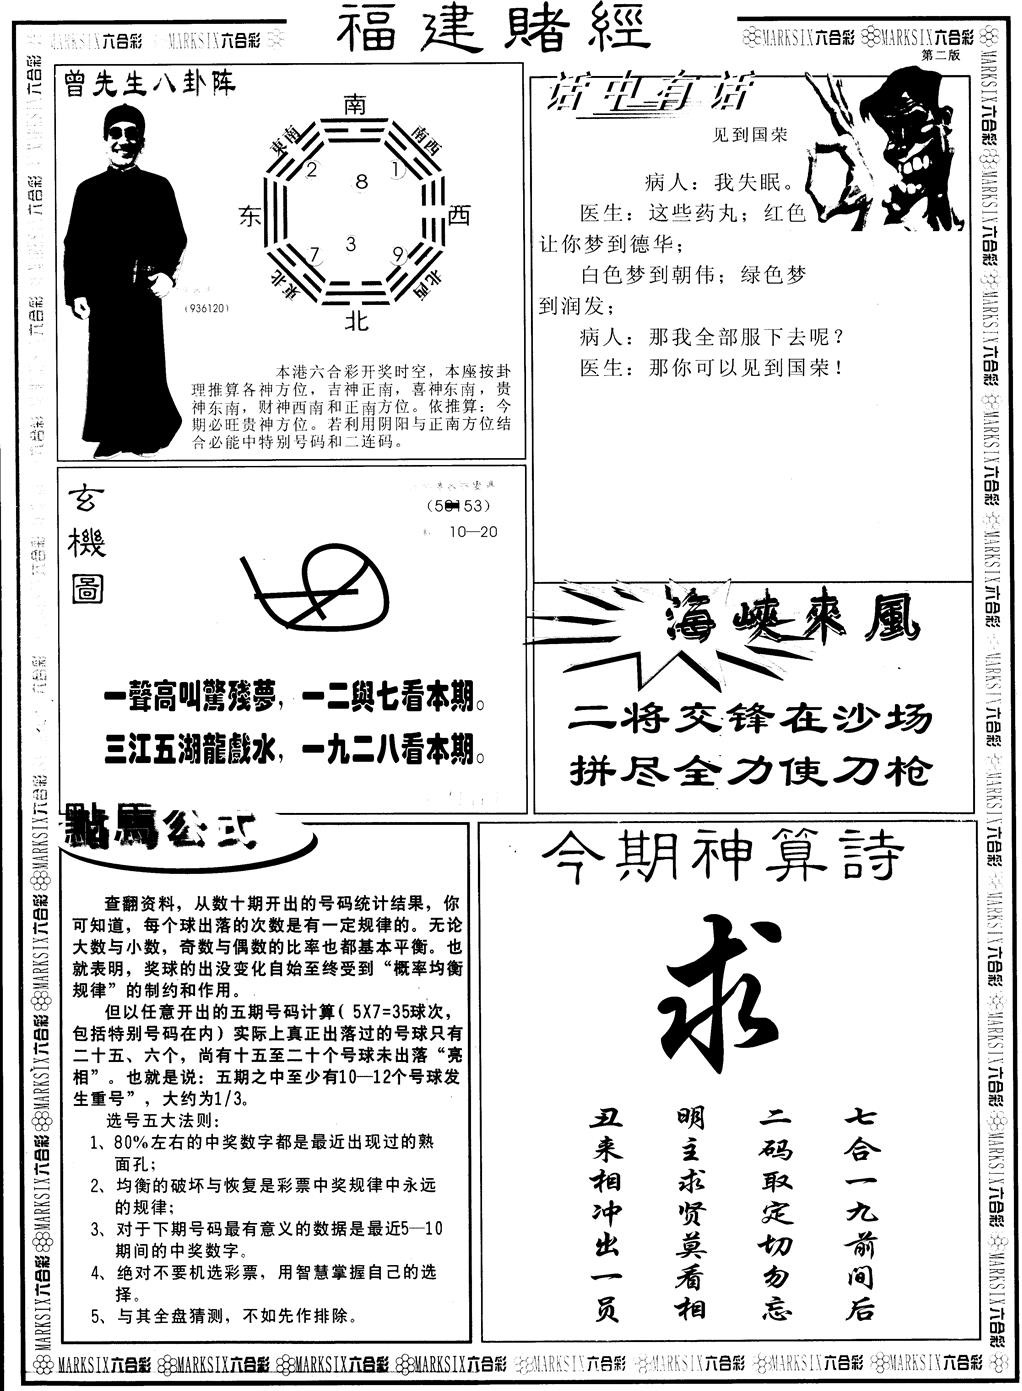 福建賭經
MARKSIX六合彩 MARKSIX六合彩
MARKSIX六合彩 MARKSIX六合彩
第二版
曾先生八卦阵
南
東南 南西
2 8 1
东 西
7 3 9
東北 北西
北
(936120)
本港六合彩开奖时空，本座按卦
理推算各神方位，吉神正南，喜神东南，贵
神东南，财神西南和正南方位。依推算：今
期必旺贵神方位。若利用阴阳与正南方位结
合必能中特别号码和二连码。
话中有话
见到国荣
病人：我失眠。
医生：这些药丸；红色
让你梦到德华；
白色梦到朝伟；绿色梦
到润发；
病人：那我全部服下去呢？
医生：那你可以见到国荣！
玄機圖
10—20
一聲高叫驚殘夢，一二與七看本期。
三江五湖龍戲水，一九二八看本期。
海峽來風
二将交锋在沙场
拼尽全力使刀枪
點馬公式
查翻资料，从数十期开出的号码统计结果，你
可知道，每个球出落的次数是有一定规律的。无论
大数与小数，奇数与偶数的比率也都基本平衡。也
就表明，奖球的出没变化自始至终受到“概率均衡
规律”的制约和作用。
但以任意开出的五期号码计算( 5X7=35球次，
包括特别号码在内) 实际上真正出落过的号球只有
二十五、六个，尚有十五至二十个号球未出落“亮
相”。也就是说：五期之中至少有10—12个号球发
生重号”，大约为1/3。
选号五大法则：
1、80%左右的中奖数字都是最近出现过的熟
面孔；
2、均衡的破坏与恢复是彩票中奖规律中永远
的规律；
3、对于下期号码最有意义的数据是最近5—10
期间的中奖数字。
4、绝对不要机选彩票，用智慧掌握自己的选
择。
5、与其全盘猜测，不如先作排除。
今期神算詩
求
七合一九前间后
二码取定切勿忘
明主求贤莫看相
丑来相冲出一员
MARKSIX六合彩 MARKSIX六合彩 MARKSIX六合彩 MARKSIX六合彩 MARKSIX六合彩 MARKSIX六合彩 MARKSIX六合彩 MARKSIX六合彩